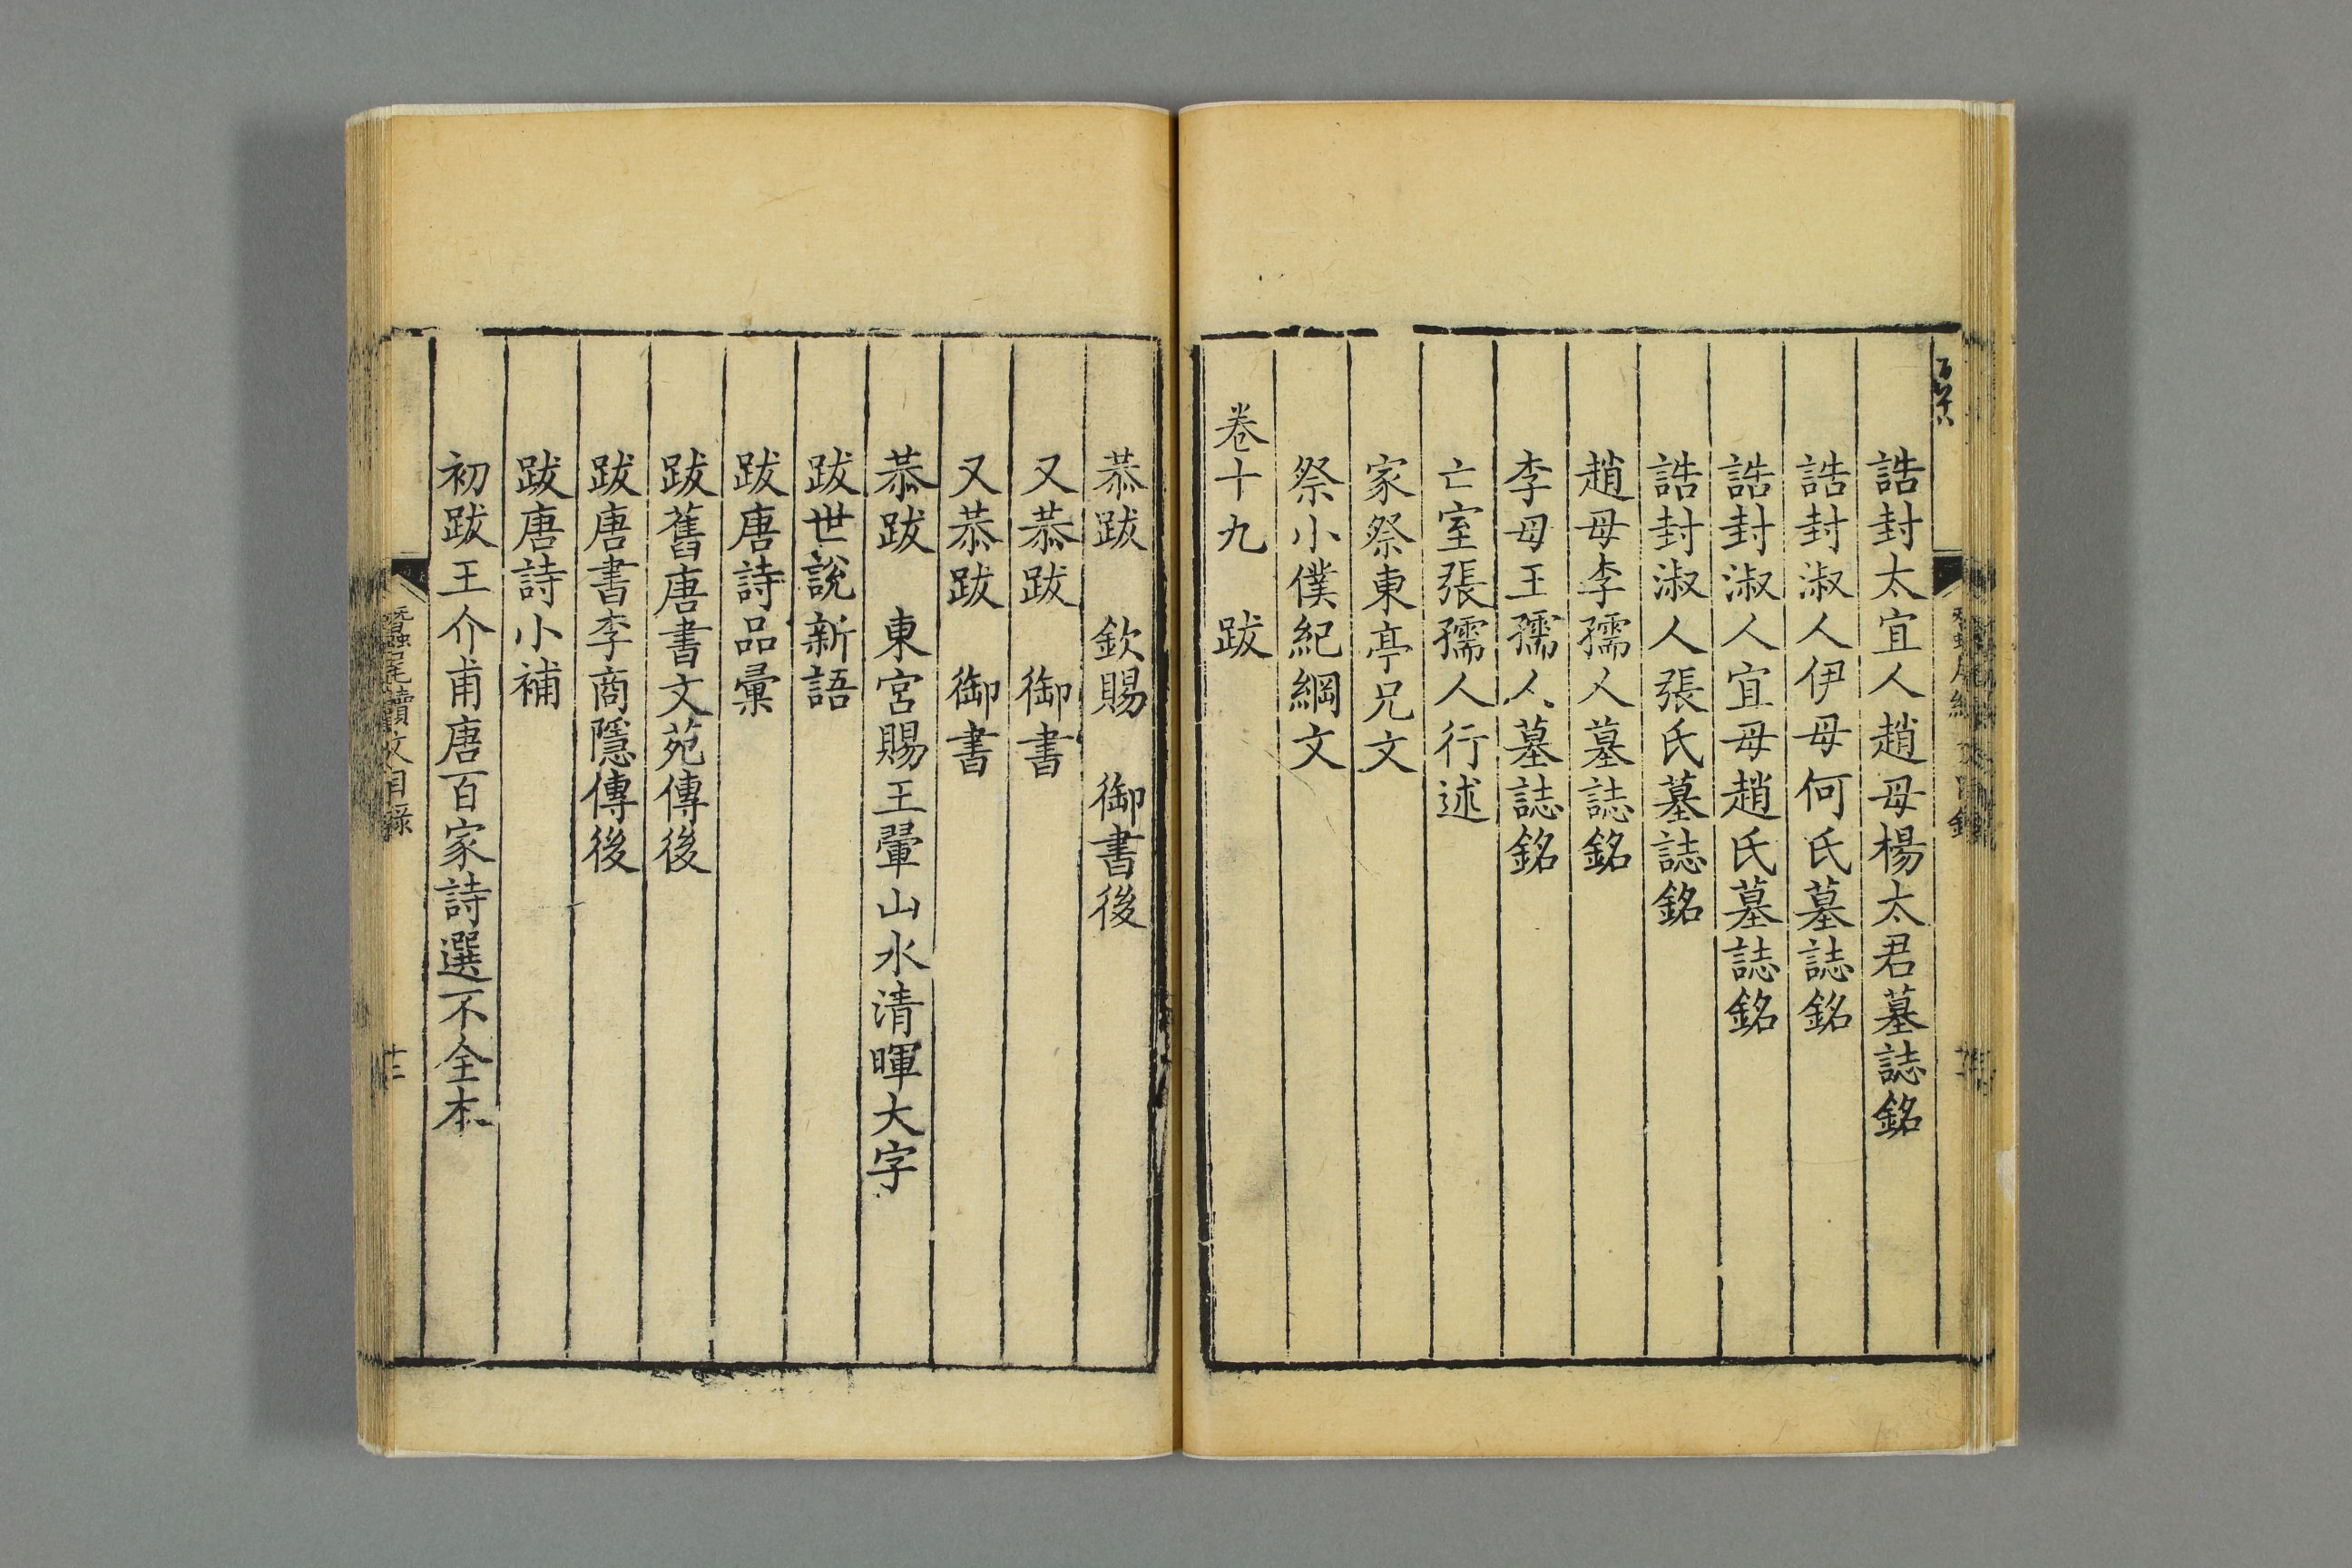 誥封太宜人趙母楊太君墓誌銘
誥封淑人伊母何氏墓誌銘
誥封淑人宜母趙氏墓誌銘
誥封淑人張氏墓誌銘
趙母李孺人墓誌銘
李母王孺人墓誌銘
亡室張孺人行述
家祭東亭兄文
祭小僕紀綱文
卷十九 跋
恭跋 欽賜 御書後
又恭跋 御書
又恭跋 御書
恭跋 東宮賜王翬山水清暉大字
跋世說新語
跋唐詩品彙
跋舊唐書文苑傳後
跋唐書李商隱傳後
跋唐詩小補
初跋王介甫唐百家詩選不全本
蠶尾續文目錄
十三